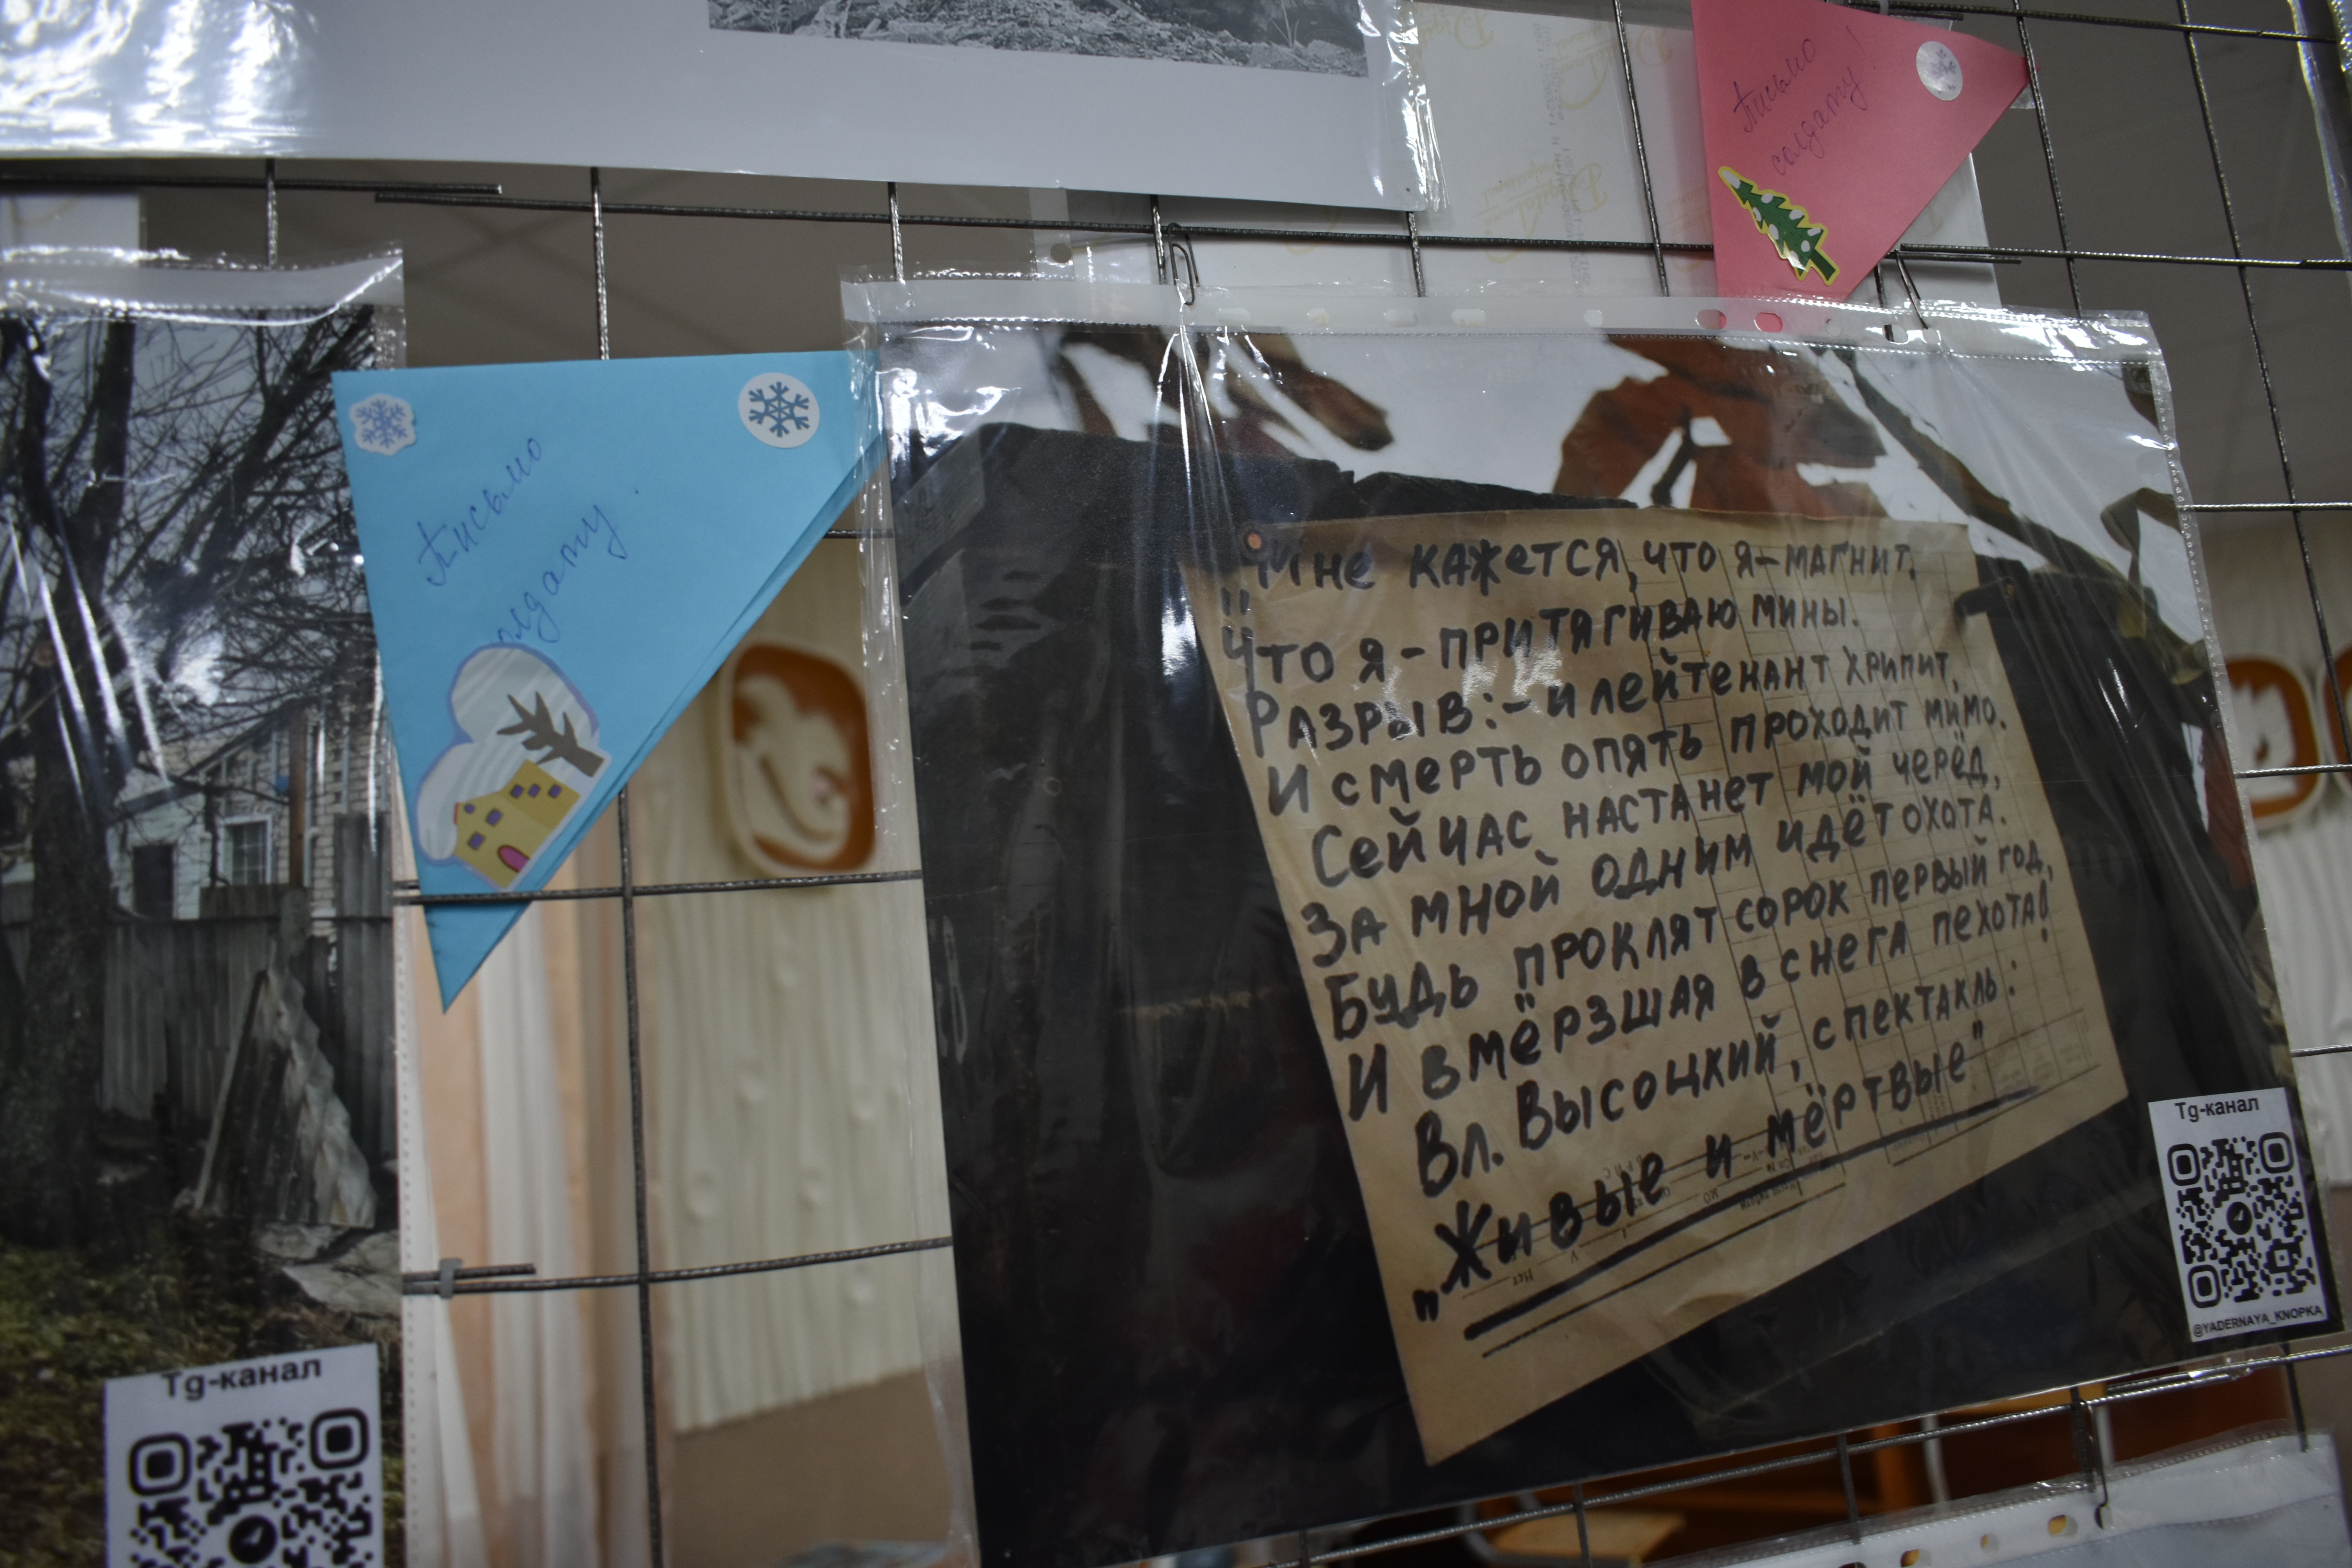 Письмо
солдату!
Письмо
солдату!
"Мне кажется, что я - магнит,
Что я - притягиваю мины.
Разрыв: - и лейтенант хрипит,
И смерть опять проходит мимо.
Сейчас настанет мой черёд,
За мной одним идёт охота.
Будь проклят сорок первый год,
И вмёрзшая в снега пехота!
Вл. Высоцкий, спектакль:
„Живые и мёртвые"
Tg-канал
@YADERNAYA_KNOPKA
Tg-канал